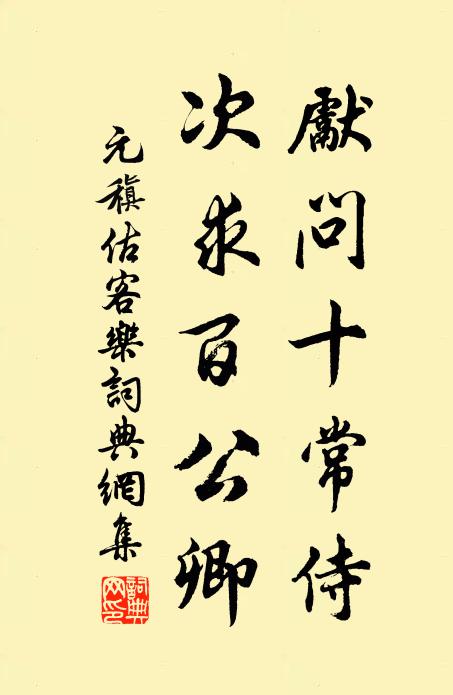 獻問十常侍
次求百公卿
元稹估客樂詞典網集
詞典網印